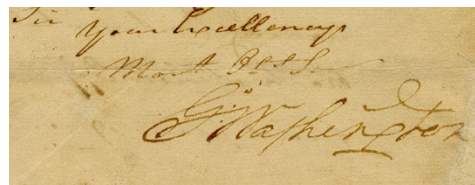 Sir
your Excellencys
Most Obt S
Go: Washington